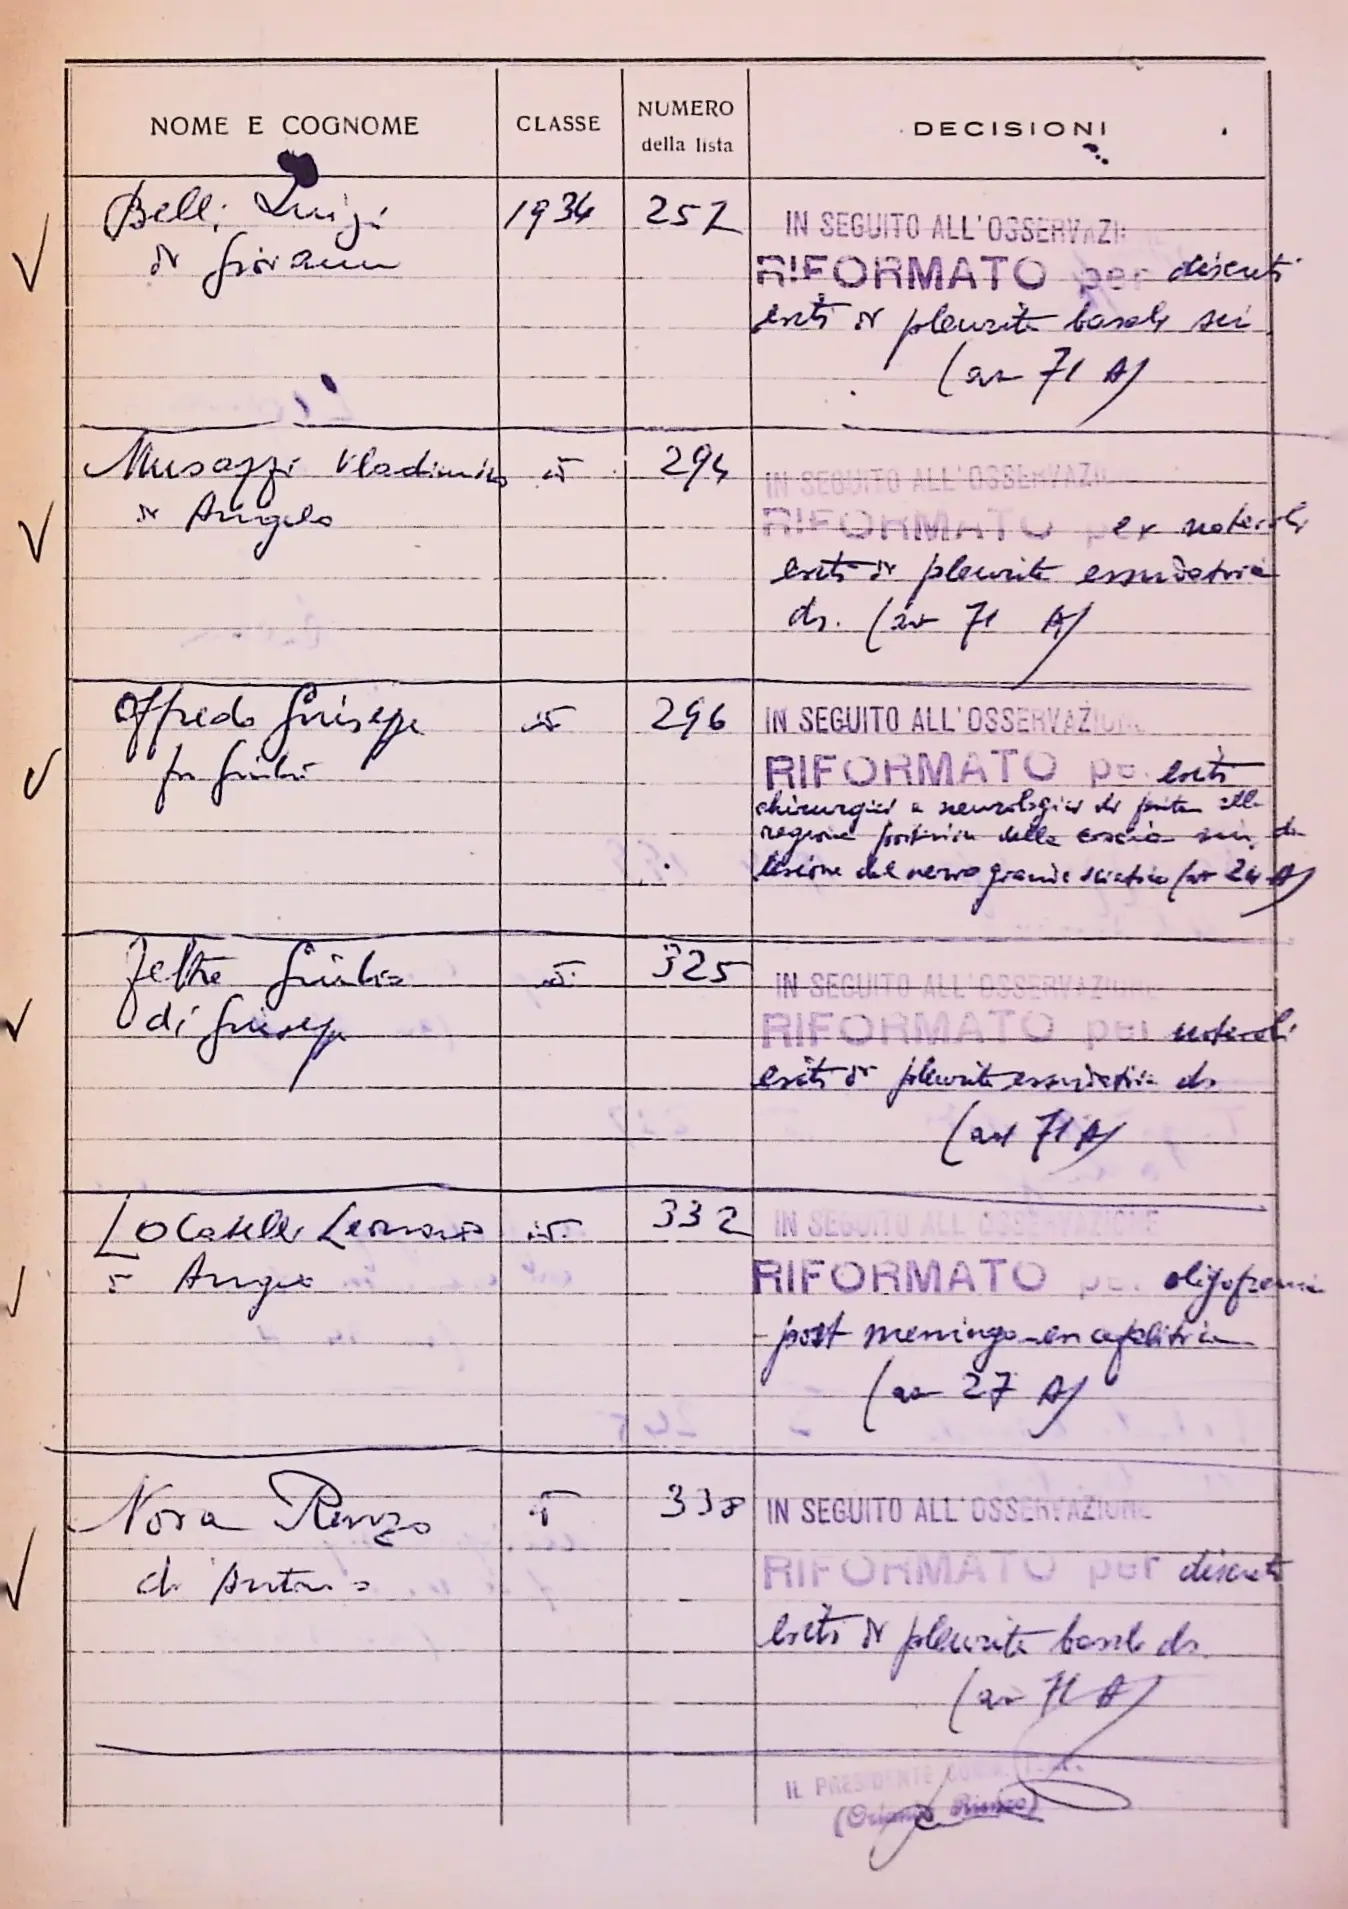 NOME E COGNOME CLASSE NUMERO della lista DECISIONI
Belli Luigi 1934 252 IN SEGUITO ALL'OSSERVAZI
di Giovanni RIFORMATO per discreti
esiti di pleurite basale sin
(art 71 A)
Musazzi Vladimiro id 294 IN SEGUITO ALL'OSSERVAZIO
di Angelo RIFORMATO per notevoli
esiti di pleurite essudativa
ds. (art 71 A)
Offredo Giuseppe id 296 IN SEGUITO ALL'OSSERVAZIONE
fu Giulio RIFORMATO pe esiti
chirurgici e neurologici di ferita alla
regione posteriore della coscia sin, da
lesione del nervo grande sciatico (art 24 A)
Feltre Giulio id 325 IN SEGUITO ALL'OSSERVAZIONE
di Giuseppe RIFORMATO per notevoli
esiti di pleurite essudativa ds
(art 71 A)
Locatelli id 332 IN SEGUITO ALL'OSSERVAZIONE
RIFORMATO pe. oligofrenia
post meningo-encefalitica
(art 27 A)
Nova Renzo id 338 IN SEGUITO ALL'OSSERVAZIONE
di Antonio RIFORMATO per discreti
esiti di pleurite basale ds.
(art 71 A)
IL PRESIDENTE